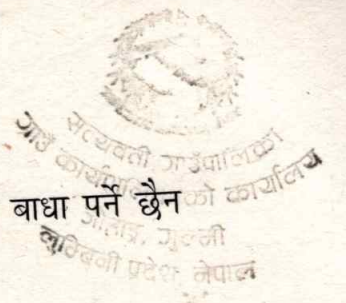 सत्यवती गाउँपालिका
गाउँ कार्यपालिकाको कार्यालय
बाधा पर्ने छैन
गुल्मी
लुम्बिनी प्रदेश, नेपाल